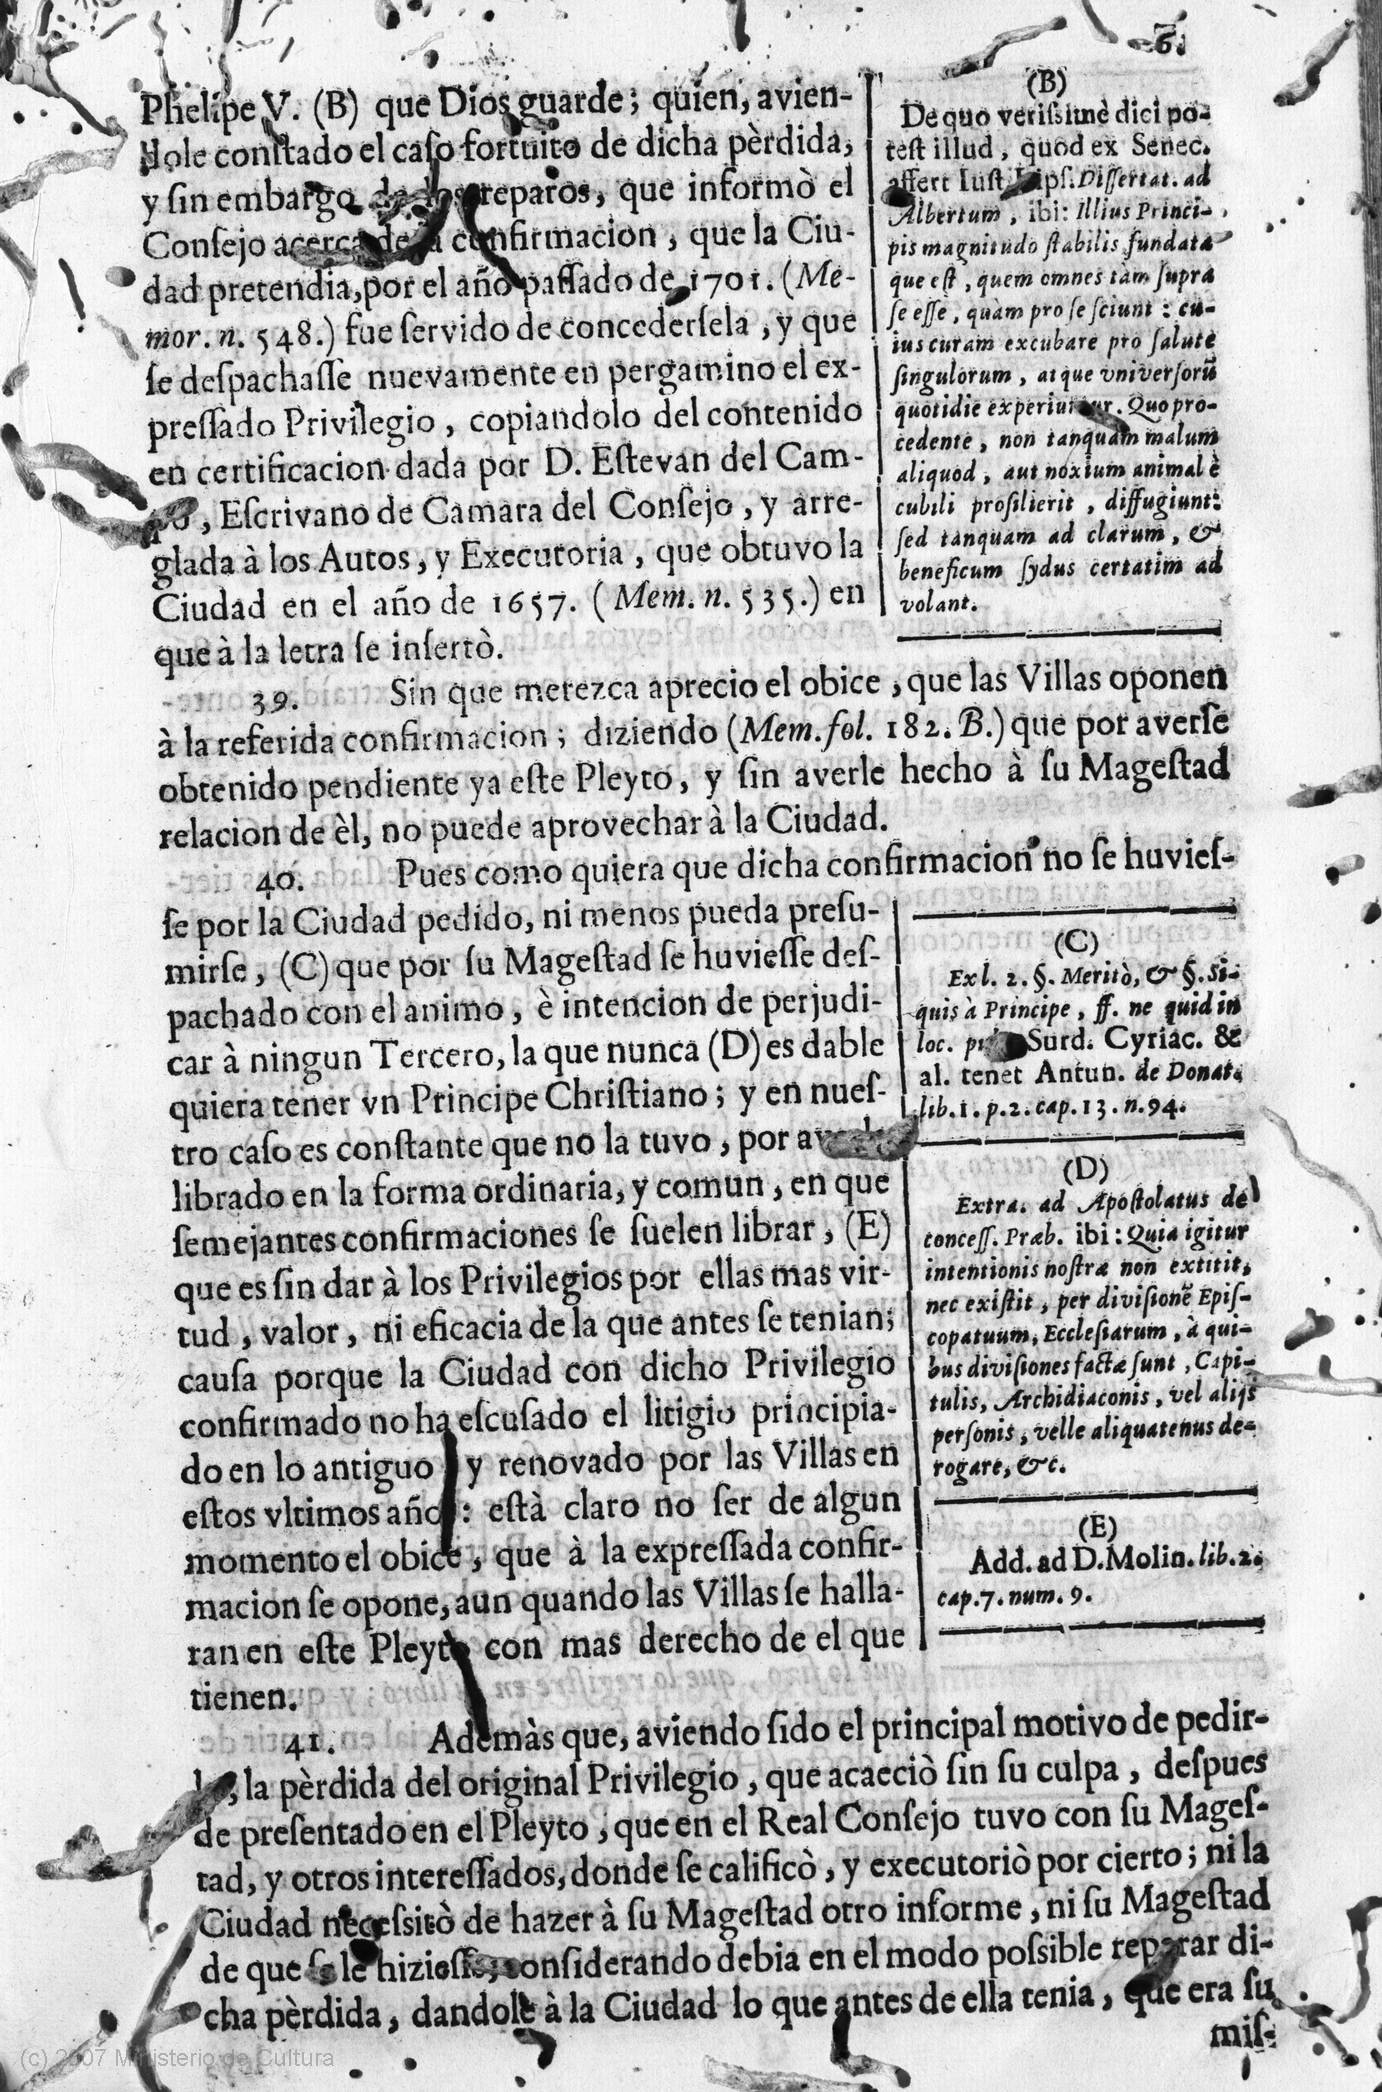 6.
Phelipe V. (B) que Dios guarde; quien, avien-
dole conſtado el caſo fortuito de dicha pèrdida,
y ſin embargo de los reparos, que informò el
Conſejo acerca de la confirmacion, que la Ciu-
dad pretendia, por el año paſſado de 1701. (Me-
mor. n. 548.) fue ſervido de concederſela, y que
ſe deſpachaſſe nuevamente en pergamino el ex-
preſſado Privilegio, copiandolo del contenido
en certificacion dada por D. Eſtevan del Cam-
po, Eſcrivano de Camara del Conſejo, y arre-
glada à los Autos, y Executoria, que obtuvo la
Ciudad en el año de 1657. (Mem. n. 535.) en
que à la letra ſe inſertò.
(B)
De quo veriſsimè dici po-
teſt illud, quod ex Senec.
affert Iuſt. Lipſ. Diſſertat. ad
Albertum, ibi: Illius Princi-
pis magnitudo ſtabilis fundata
que eſt, quem omnes tàm ſupra
ſe eſſe, quàm pro ſe ſciunt: cu-
ius curam excubare pro ſalute
ſingulorum, atque vniverſorũ
quotidie experiuntur. Quo pro-
cedente, non tanquam malum
aliquod, aut noxium animal è
cubili proſilierit, diffugiunt:
ſed tanquam ad clarum, &
beneficum ſydus certatim ad
volant.
39. Sin que merezca aprecio el obice, que las Villas oponen
à la referida confirmacion; diziendo (Mem. fol. 182. B.) que por averſe
obtenido pendiente ya eſte Pleyto, y ſin averle hecho à ſu Mageſtad
relacion de èl, no puede aprovechar à la Ciudad.
40. Pues como quiera que dicha confirmacion no ſe huvieſ-
ſe por la Ciudad pedido, ni menos pueda preſu-
mirſe, (C) que por ſu Mageſtad ſe huvieſſe deſ-
pachado con el animo, è intencion de perjudi-
car à ningun Tercero, la que nunca (D) es dable
quiera tener vn Principe Chriſtiano; y en nueſ-
tro caſo es conſtante que no la tuvo, por
librado en la forma ordinaria, y comun, en que
ſemejantes confirmaciones ſe ſuelen librar, (E)
que es ſin dar à los Privilegios por ellas mas vir-
tud, valor, ni eficacia de la que antes ſe tenian;
cauſa porque la Ciudad con dicho Privilegio
confirmado no ha eſcuſado el litigio principia-
do en lo antiguo, y renovado por las Villas en
eſtos vltimos años: eſtà claro no ſer de algun
momento el obice, que à la expreſſada confir-
macion ſe opone, aun quando las Villas ſe halla-
ran en eſte Pleyto con mas derecho de el que
tienen.
(C)
Ex l. 2. §. Meritò, & §. Si-
quis à Principe, ff. ne quid in
loc. Surd. Cyriac. &
al. tenet Antun. de Donat.
lib. 1. p. 2. cap. 13. n. 94.
(D)
Extra. ad Apoſtolatus de
conceſſ. Præb. ibi: Quia igitur
intentionis noſtræ non extitit,
nec exiſtit, per diviſionẽ Epiſ-
copatuum, Eccleſiarum, à qui-
bus diviſiones factæ ſunt, Capi-
tulis, Archidiaconis, vel alijs
perſonis, velle aliquatenus de-
rogare, &c.
(E)
Add. ad D. Molin. lib. 2.
cap. 7. num. 9.
41. Ademàs que, aviendo ſido el principal motivo de pedir-
la, la pèrdida del original Privilegio, que acaeciò ſin ſu culpa, deſpues
de preſentado en el Pleyto, que en el Real Conſejo tuvo con ſu Mageſ-
tad, y otros intereſſados, donde ſe calificò, y executoriò por cierto; ni la
Ciudad neceſsitò de hazer à ſu Mageſtad otro informe, ni ſu Mageſtad
de que ſe le hizieſſe; conſiderando debia en el modo poſsible reparar di-
cha pèrdida, dandole à la Ciudad lo que antes de ella tenia, que era ſu
miſ-
(c) 2007 Ministerio de Cultura